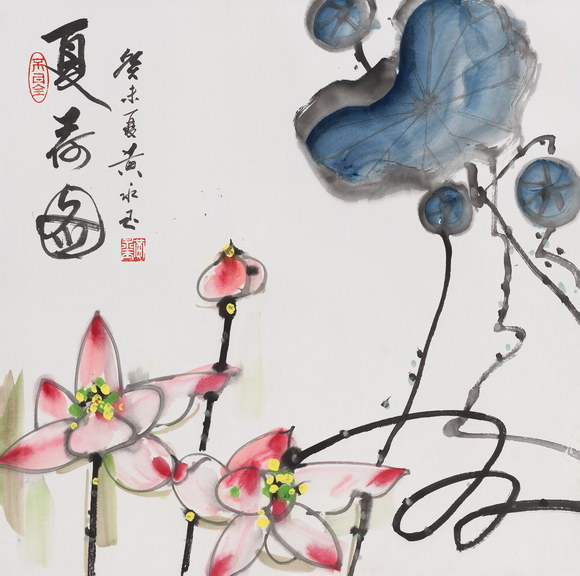 夏荷图
癸未夏黄永玉